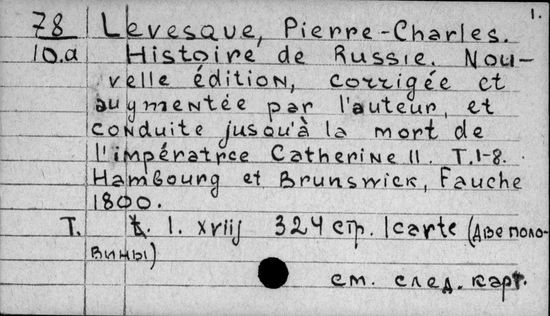 1.
78 Levesque, Pierre-Charles.
10.a Histoire de Russie. Nou-
velle édition, corrigée et
augmentée par l'auteur, et
conduite jusqu'à la mort de
l'impératrce Catherine II. T.1-8.
Hambourg et Brunswick, Fauche
1800.
T. t. 1. xviij 324 стр. 1 carte (Две поло-
вины)
см. след. карт.